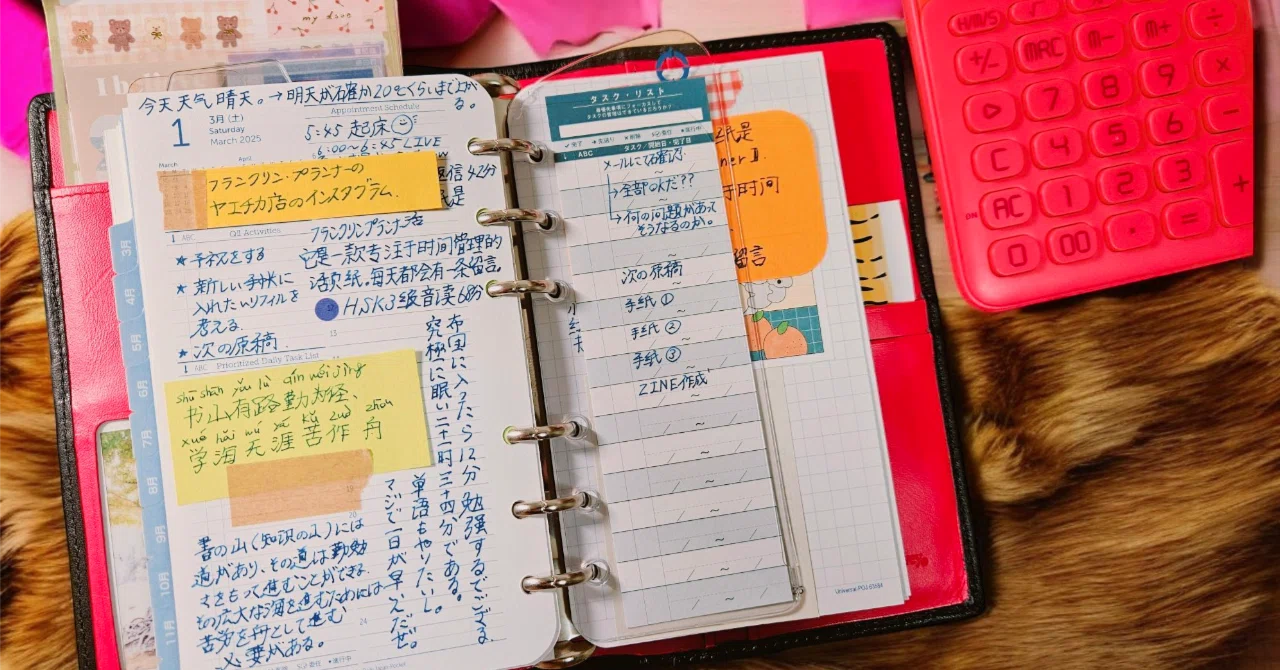 my dear
今天天气晴天。→明天が石確か20℃くらいまで上がる。
1
3月(土)
Saturday
March 2025
March
April
Appointment Schedule
5:45 起床
6:00〜6:45 LIVE
返信 42分
フランクリン・プランナーの
ヤエチカ店のインスタグラム.
フランクリンプランナー活
↓ ABC
QII Activities
它是一款专注于时间管理的
活页纸.每天都会有一条留言。
HSK3级音读68分
★予祝をする
★新しい手帳に
入れたいリフィルを
考える.
★次の原稿
13
↓ ABC Prioritized Daily Task List
shū shān yǒu lù qín wéi jìng
书山有路勤为径、
xué hǎi wú yá kǔ zuò zhōu
学海天涯苦作舟
布団に入ったら12分勉強するでござる
究極に眠い二十一時三十四分である。
単語もやりたいし。
マジで一日が早ぇだぜ。
19
20
24
書の山(知識の山)には
道があり、その道は勤勉
さをもって進むことができる.
その広大な海を進むためには
苦労を舟として進む
必要がある。
3月
4月
5月
6月
7月
8月
9月
10月
11月
タスク・リスト
最優先事項にフォーカスして
タスクの管理はできているだろうか?
↓ ABC タスク/開始日・完了日
メールにて確認.
→全部のんだ??
→何の問題があって
そうなるのか。
次の原稿
手紙①
手紙②
手紙③
ZINE作成
纸是
ner』.
于时间
留言
H/M/S
√
+/-
MRC
M-
M+
÷
▷
7
8
9
×
C
4
5
6
-
ON
AC
1
2
3
+
0
00
.
=